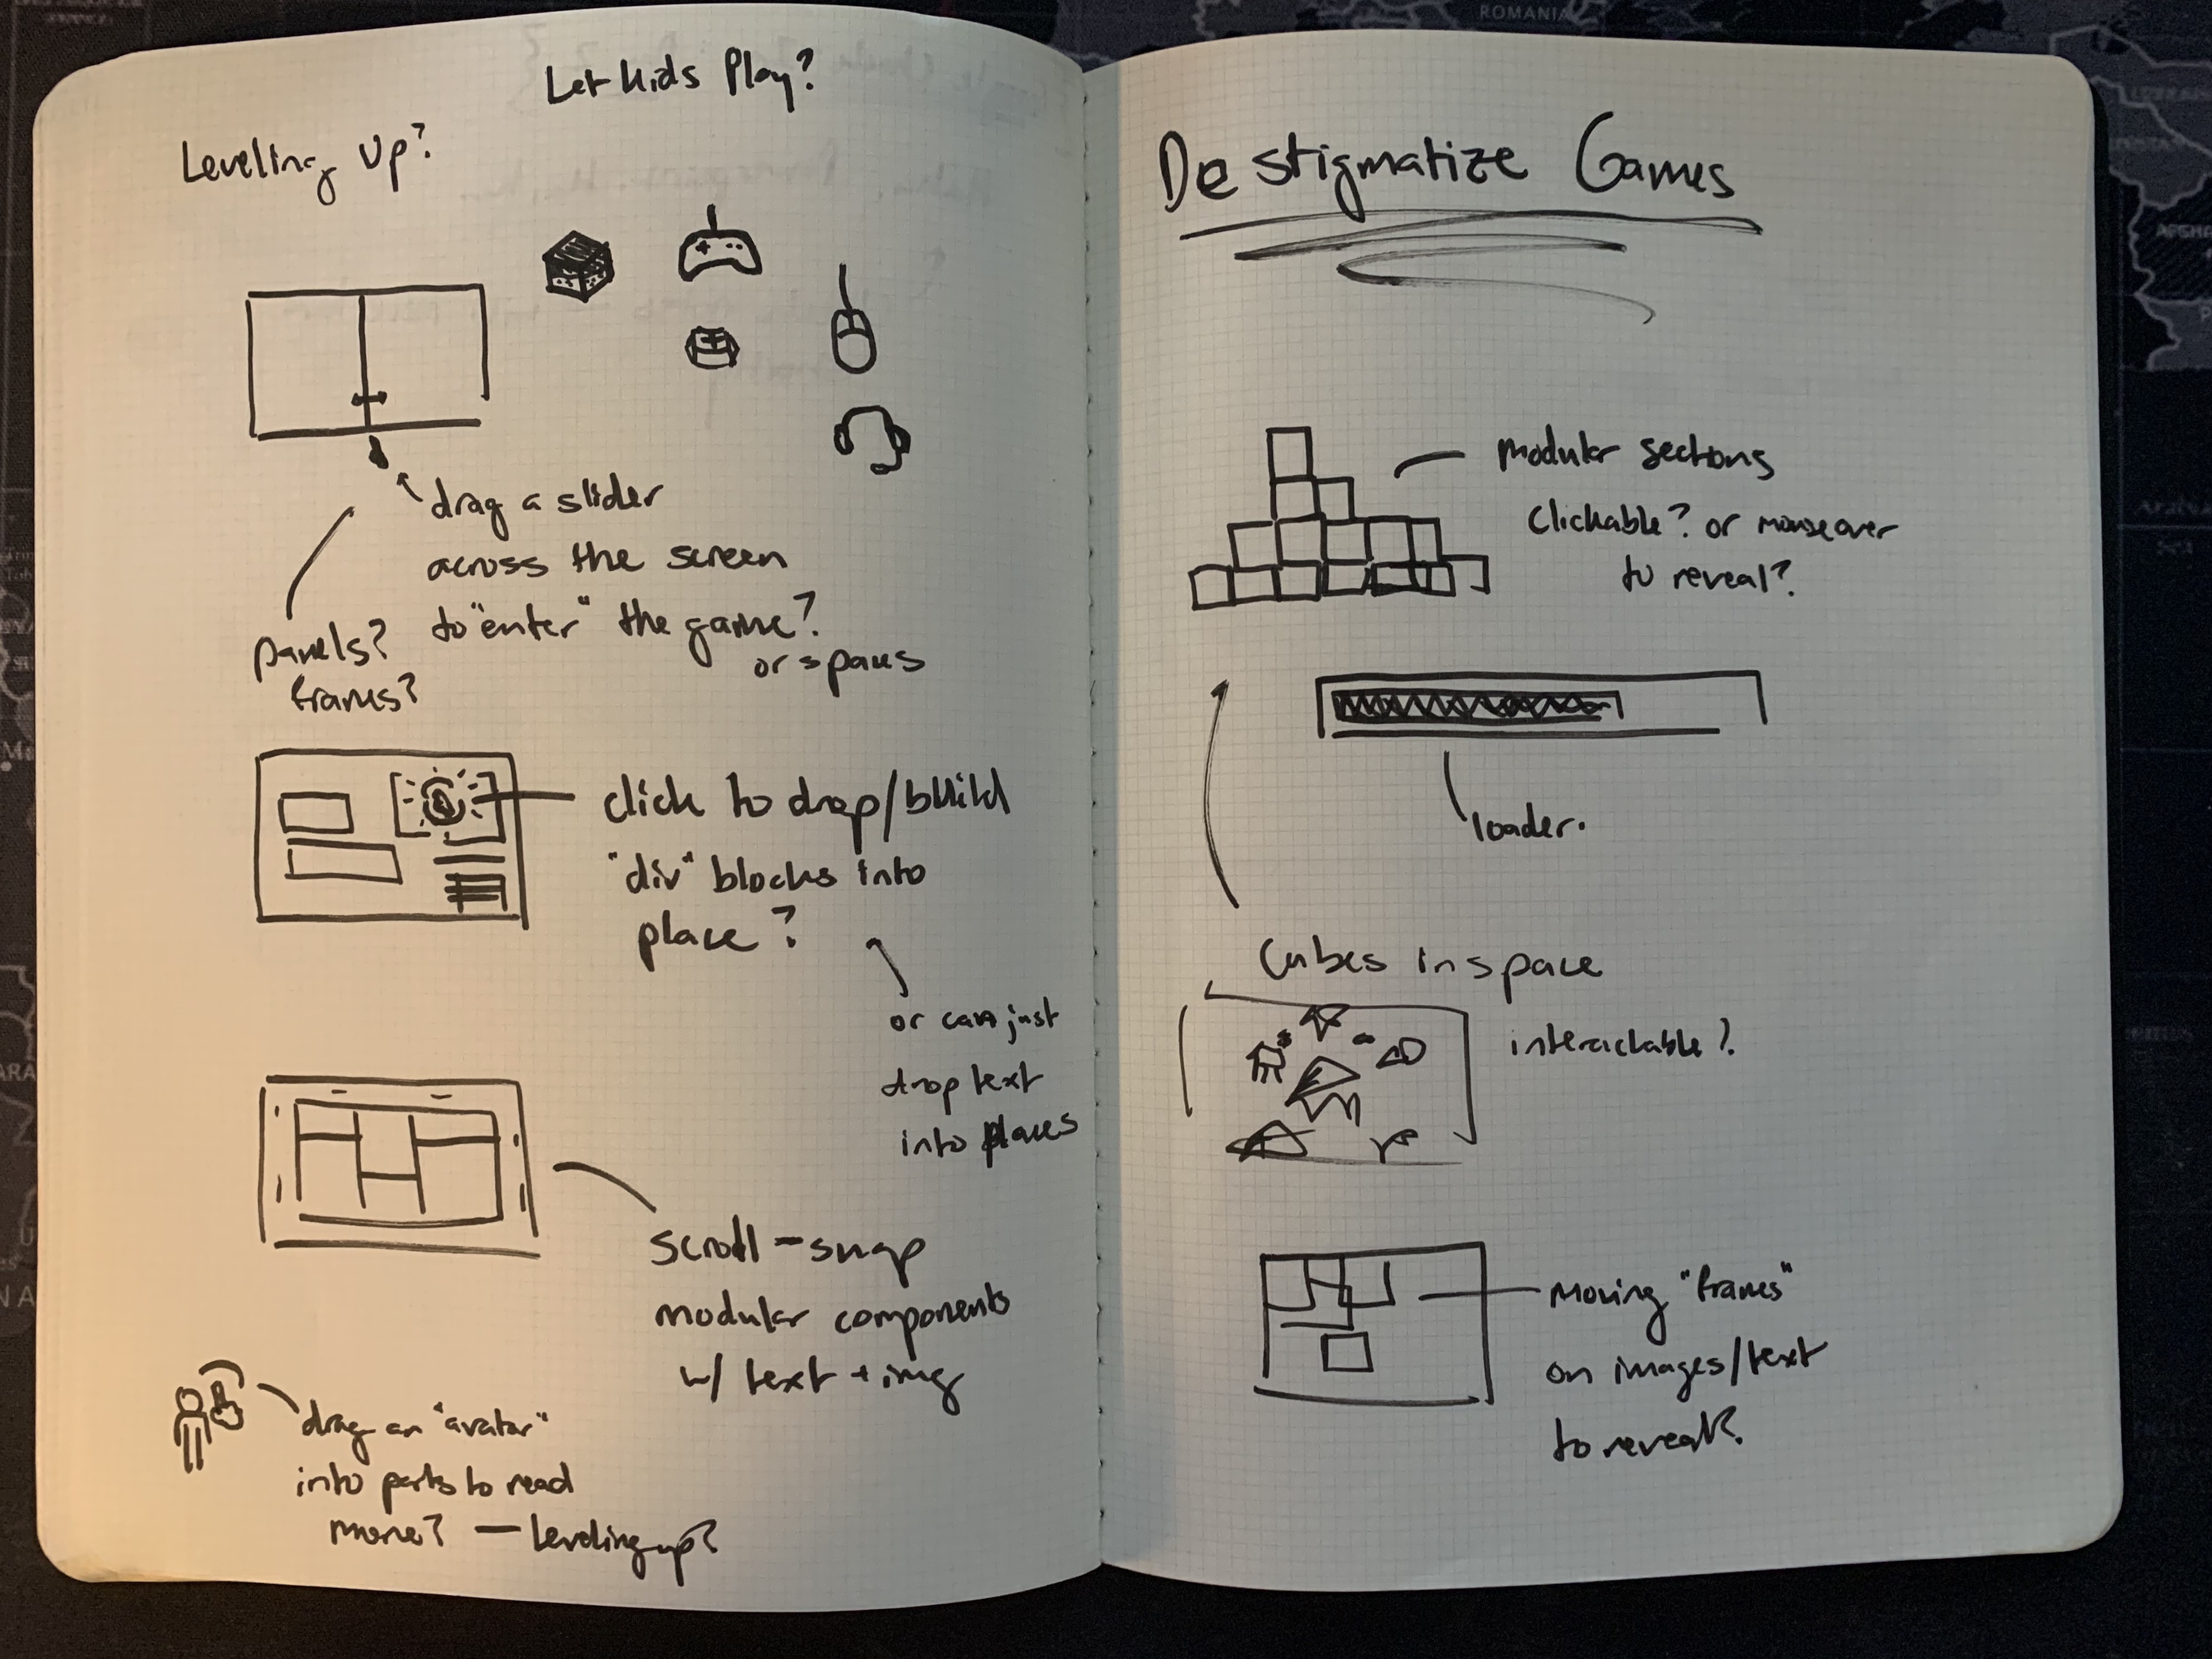 Let kids Play?
Leveling Up?
drag a slider
across the screen
to "enter" the game?
or spaces
panels?
frames?
click to drop/build
"div" blocks into
place?
or can just
drop text
into places
scroll-snap
modular components
w/ text + img
drag an "avatar"
into parts to read
more? — leveling up?
Destigmatize Games
modular sections
Clickable? or mouseover
to reveal?
loader.
Cubes in space
interactable?
Moving "frames"
on images/text
to reveal?
ROMANIA